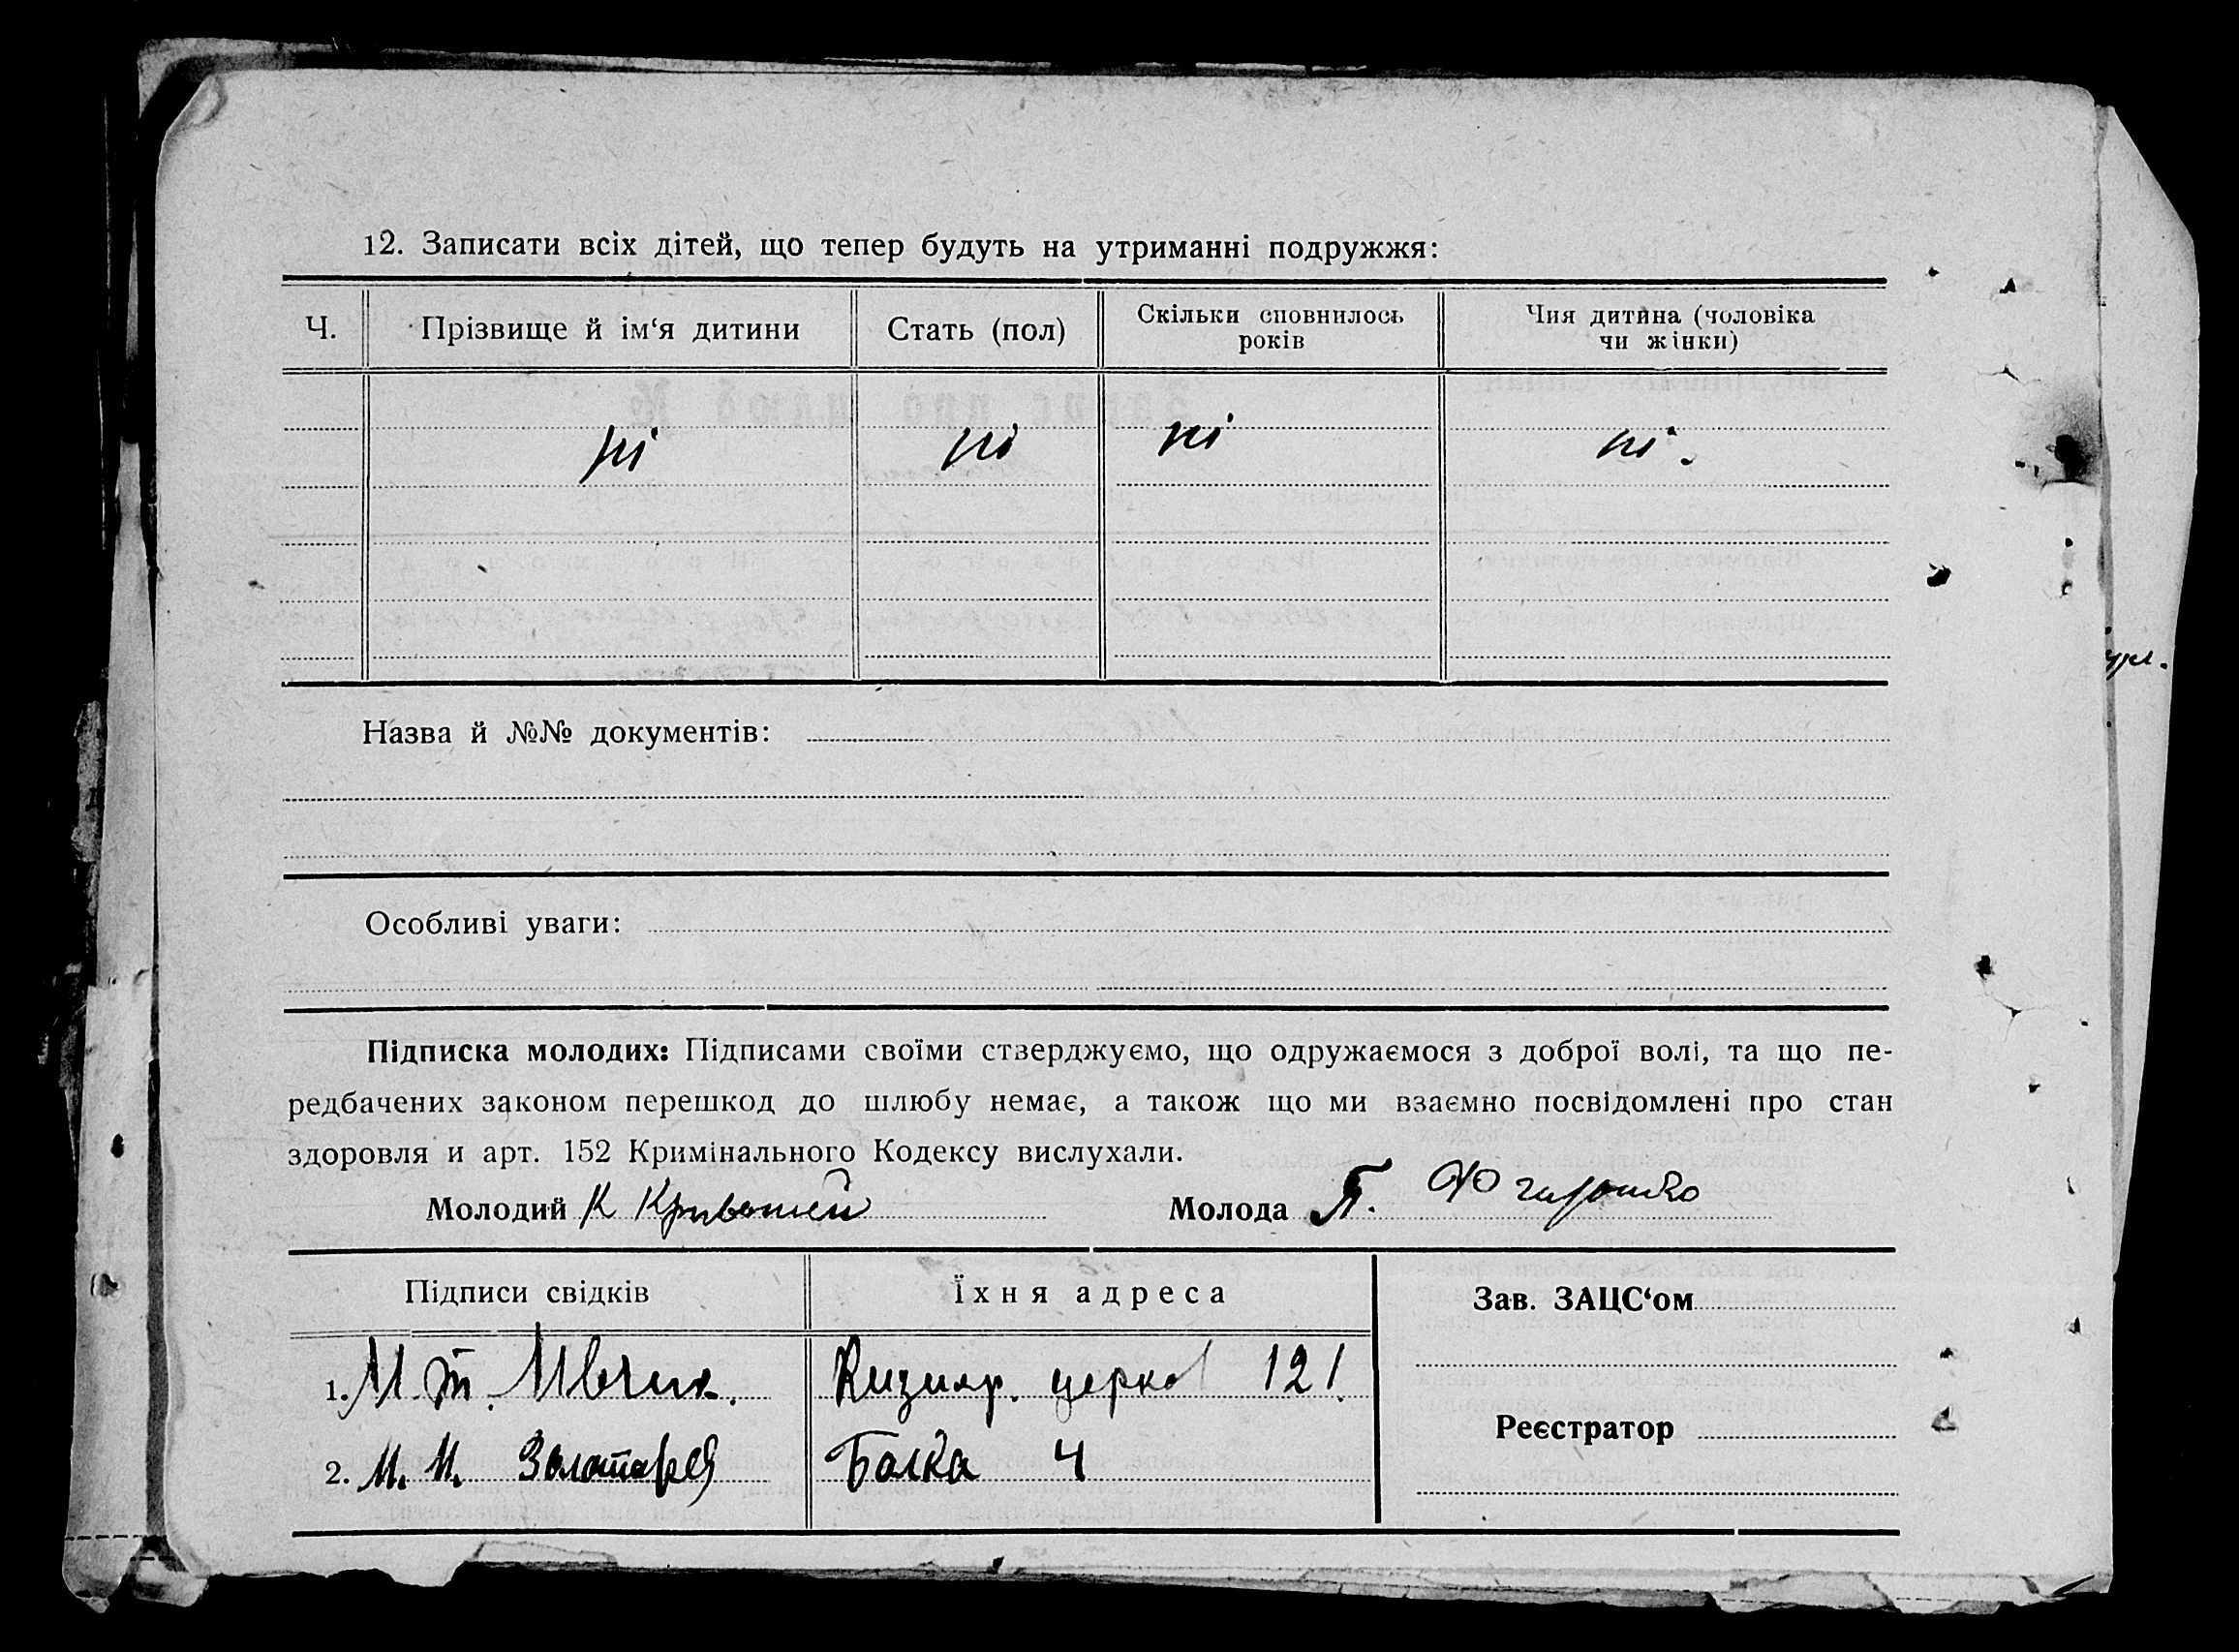 12. Записати всіх дітей, що тепер будуть на утриманні подружжя:
Ч. Прізвище й ім‘я дитини Стать (пол) Скільки сповнилось років Чия дитина (чоловіка чи жінки)
ні ні ні ні.
Назва й №№ документів:
Особливі уваги:
Підписка молодих: Підписами своїми стверджуємо, що одружаємося з доброї волі, та що пе-
редбачених законом перешкод до шлюбу немає, а також що ми взаємно посвідомлені про стан
здоровля и арт. 152 Кримінального Кодексу вислухали.
Молодий К Кривошей Молода П.
Підписи свідків Їхня адреса Зав. ЗАЦС‘ом
1. М. Т. Кизияр. церков 121.
Реєстратор
2. М. И. Золотарев Балка 4